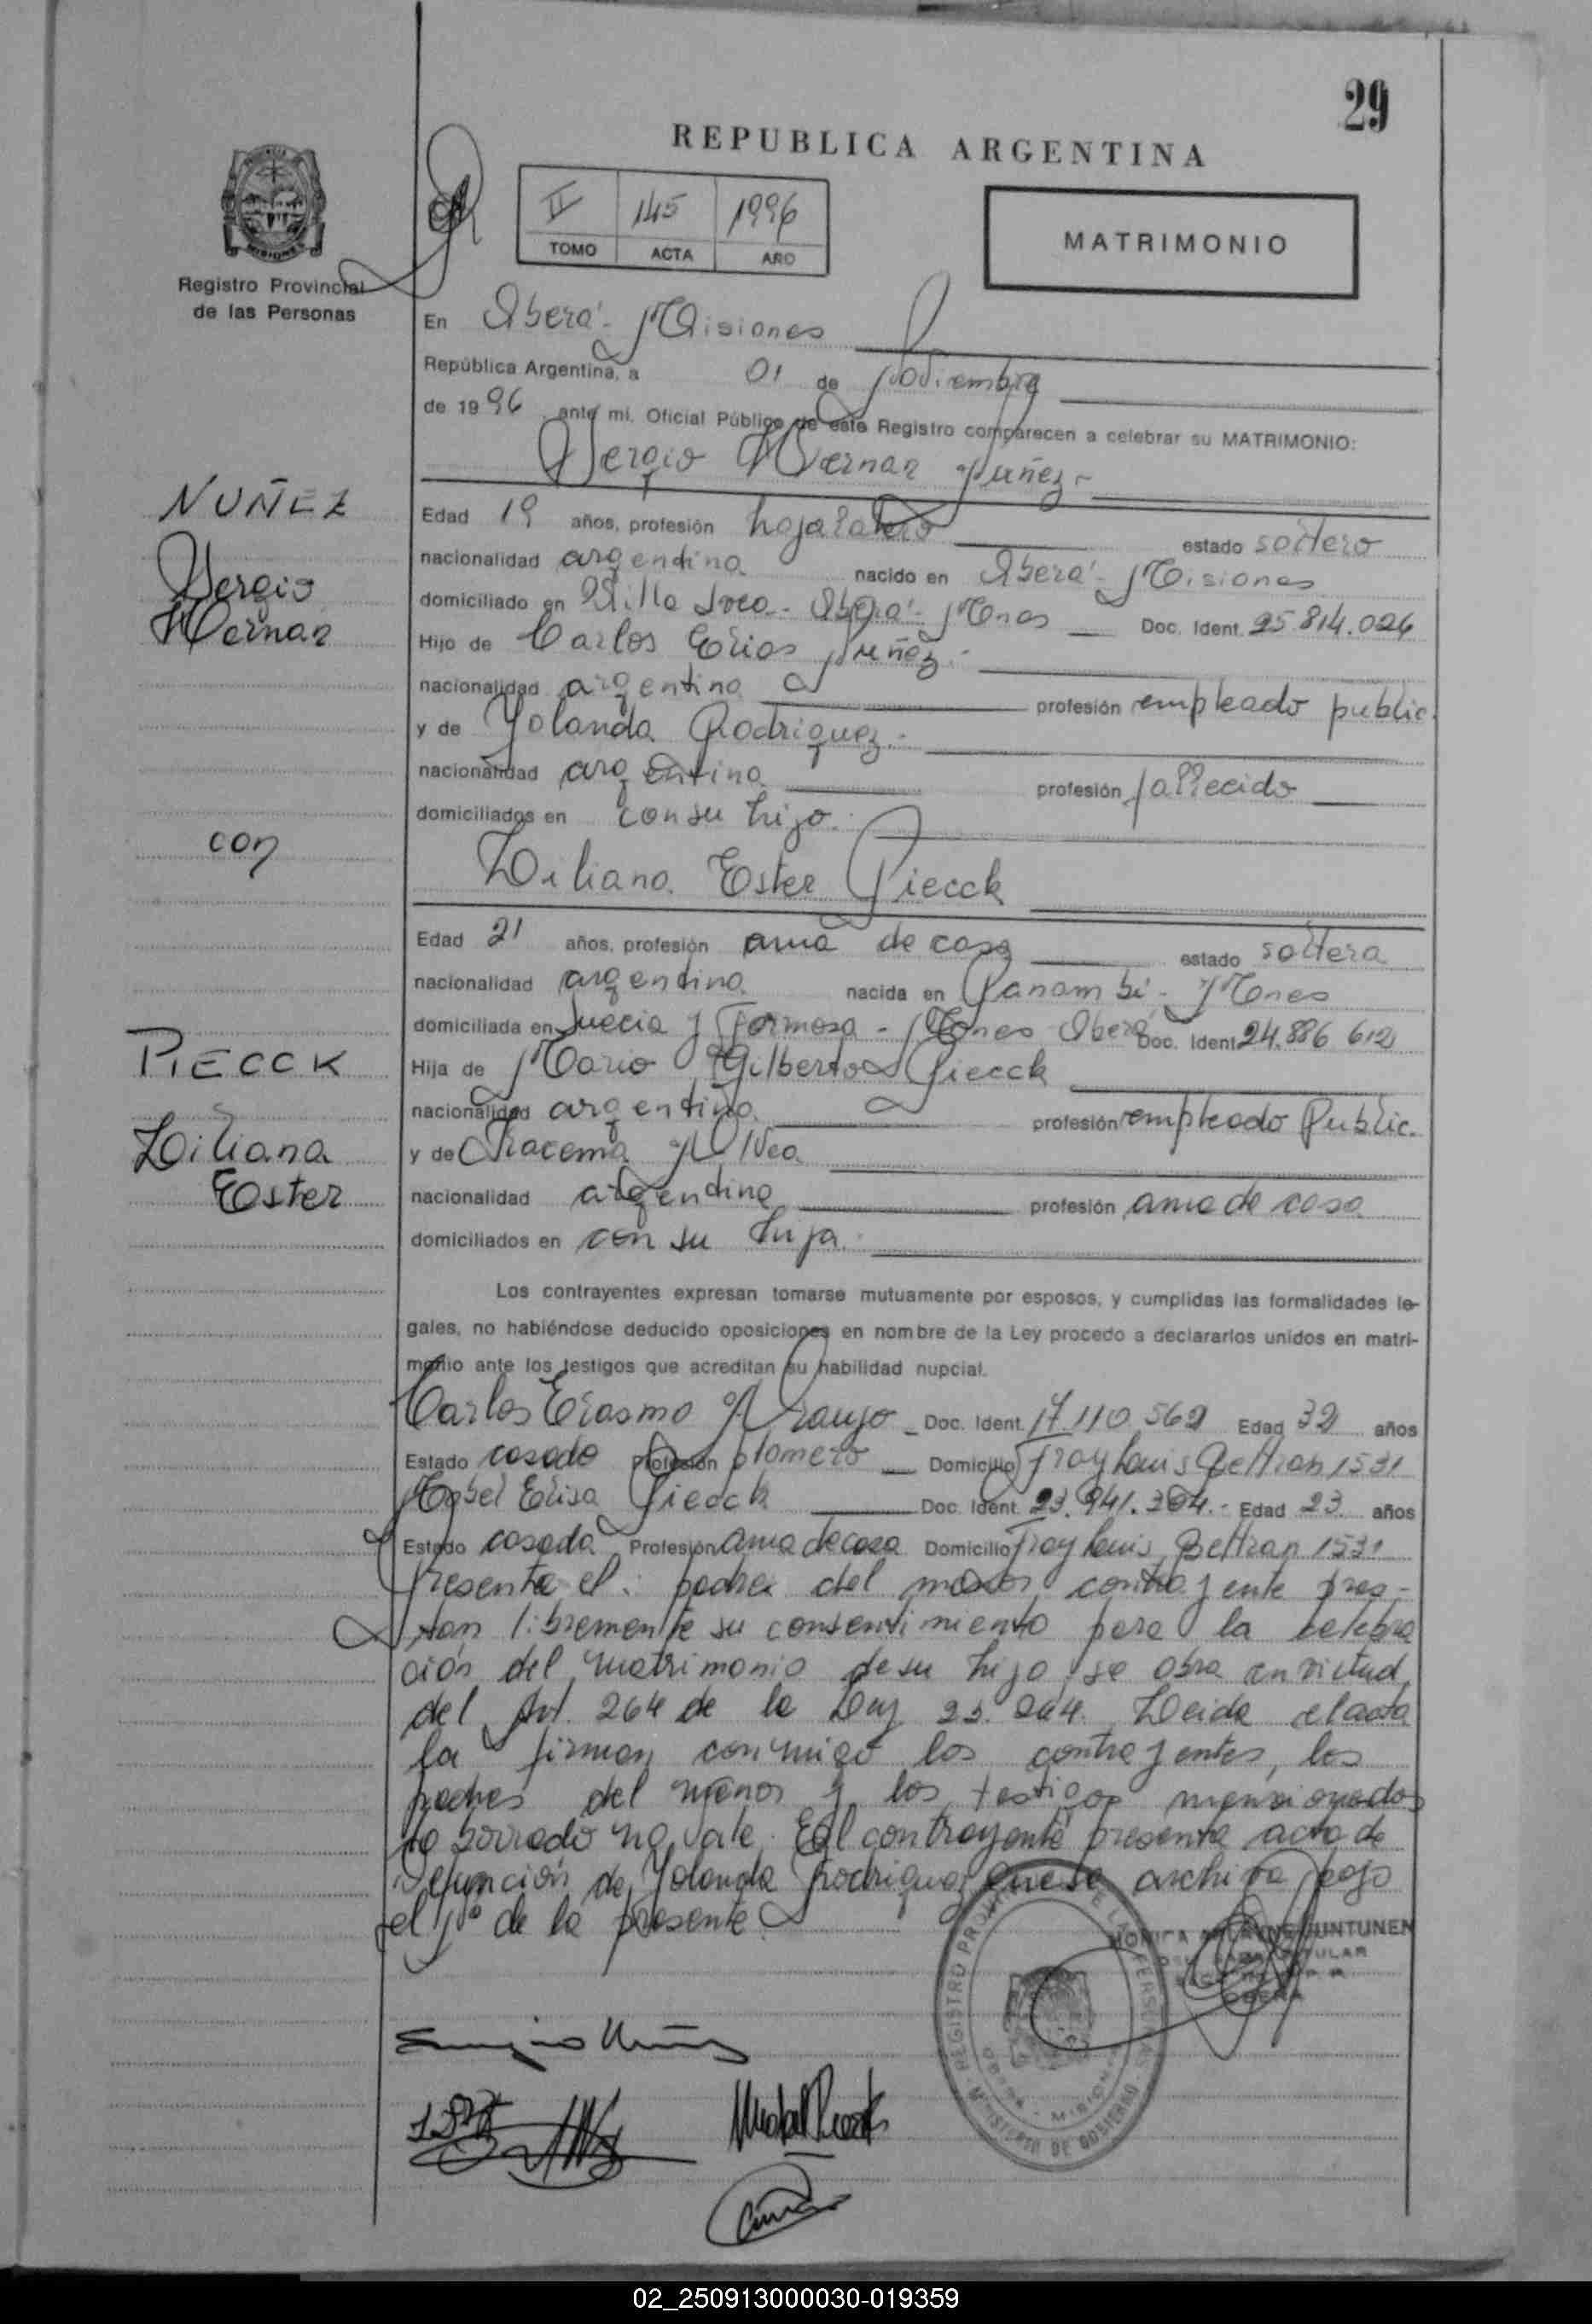 29
REPUBLICA ARGENTINA
II 145 1996
TOMO ACTA AÑO
MATRIMONIO
MISIONES
Registro Provincial
de las Personas
En Oberá - Misiones
República Argentina, a 01 de Noviembre
de 1996 ante mi, Oficial Público de este Registro comparecen a celebrar su MATRIMONIO:
Sergio Hernan Nuñez -
NUÑEZ
Sergio
Hernan
Edad 19 años, profesión hojalatero estado soltero
nacionalidad argentina nacido en Oberá - Misiones
domiciliado en Villa - Oberá - Mnes Doc. Ident. 25.814.026
Hijo de Carlos Elias Nuñez -
nacionalidad argentina profesión empleado public.
y de Yolanda Rodriguez -
nacionalidad argentina profesión fallecido
domiciliados en con su hijo.
con
Liliana Ester Piecck
Edad 21 años, profesión ama de casa estado soltera
nacionalidad argentina nacida en Panambi - Mnes
domiciliada en Suecia y Formosa - Mnes Oberá Doc. Ident 24.886 612
PIECCK
Liliana
Ester
Hija de Mario Gilberto Piecck
nacionalidad argentina profesión empleado Public.
y de Iracema
nacionalidad argentina profesión ama de casa
domiciliados en con su hija.
Los contrayentes expresan tomarse mutuamente por esposos, y cumplidas las formalidades le-
gales, no habiéndose deducido oposiciones en nombre de la Ley procedo a declararlos unidos en matri-
monio ante los testigos que acreditan su habilidad nupcial.
Carlos Erasmo Araujo - Doc. Ident. 17.110.562 Edad 32 años
Estado casado Profesión plomero Domicilio Fray Luis Beltran 1531
Mabel Elisa Piecck Doc. Ident. 23.941.304.- Edad 23 años
Estado casada Profesión ama de casa Domicilio Fray Luis Beltran 1531
Presente el: padre del menor contrayente pres-
tan libremente su consentimiento para la celebra
ción del matrimonio de su hijo, se obra en virtud
del Art. 264 de la Ley 23.264. Leida el acta
la firman conmigo los contrayentes, los
padres del menor y los testigos mencionados
lo borrado no vale. El contrayente presenta acta de
defunción de Yolanda Rodriguez que se archiva bajo
el Nº de la presente
REGISTRO PROVINCIAL DE LAS PERSONAS
MINISTERIO DE GOBIERNO
OBERA - MISIONES
MONICA HUNTUNEN
TITULAR
OBERA
Sergio Nuñez
02_250913000030-019359